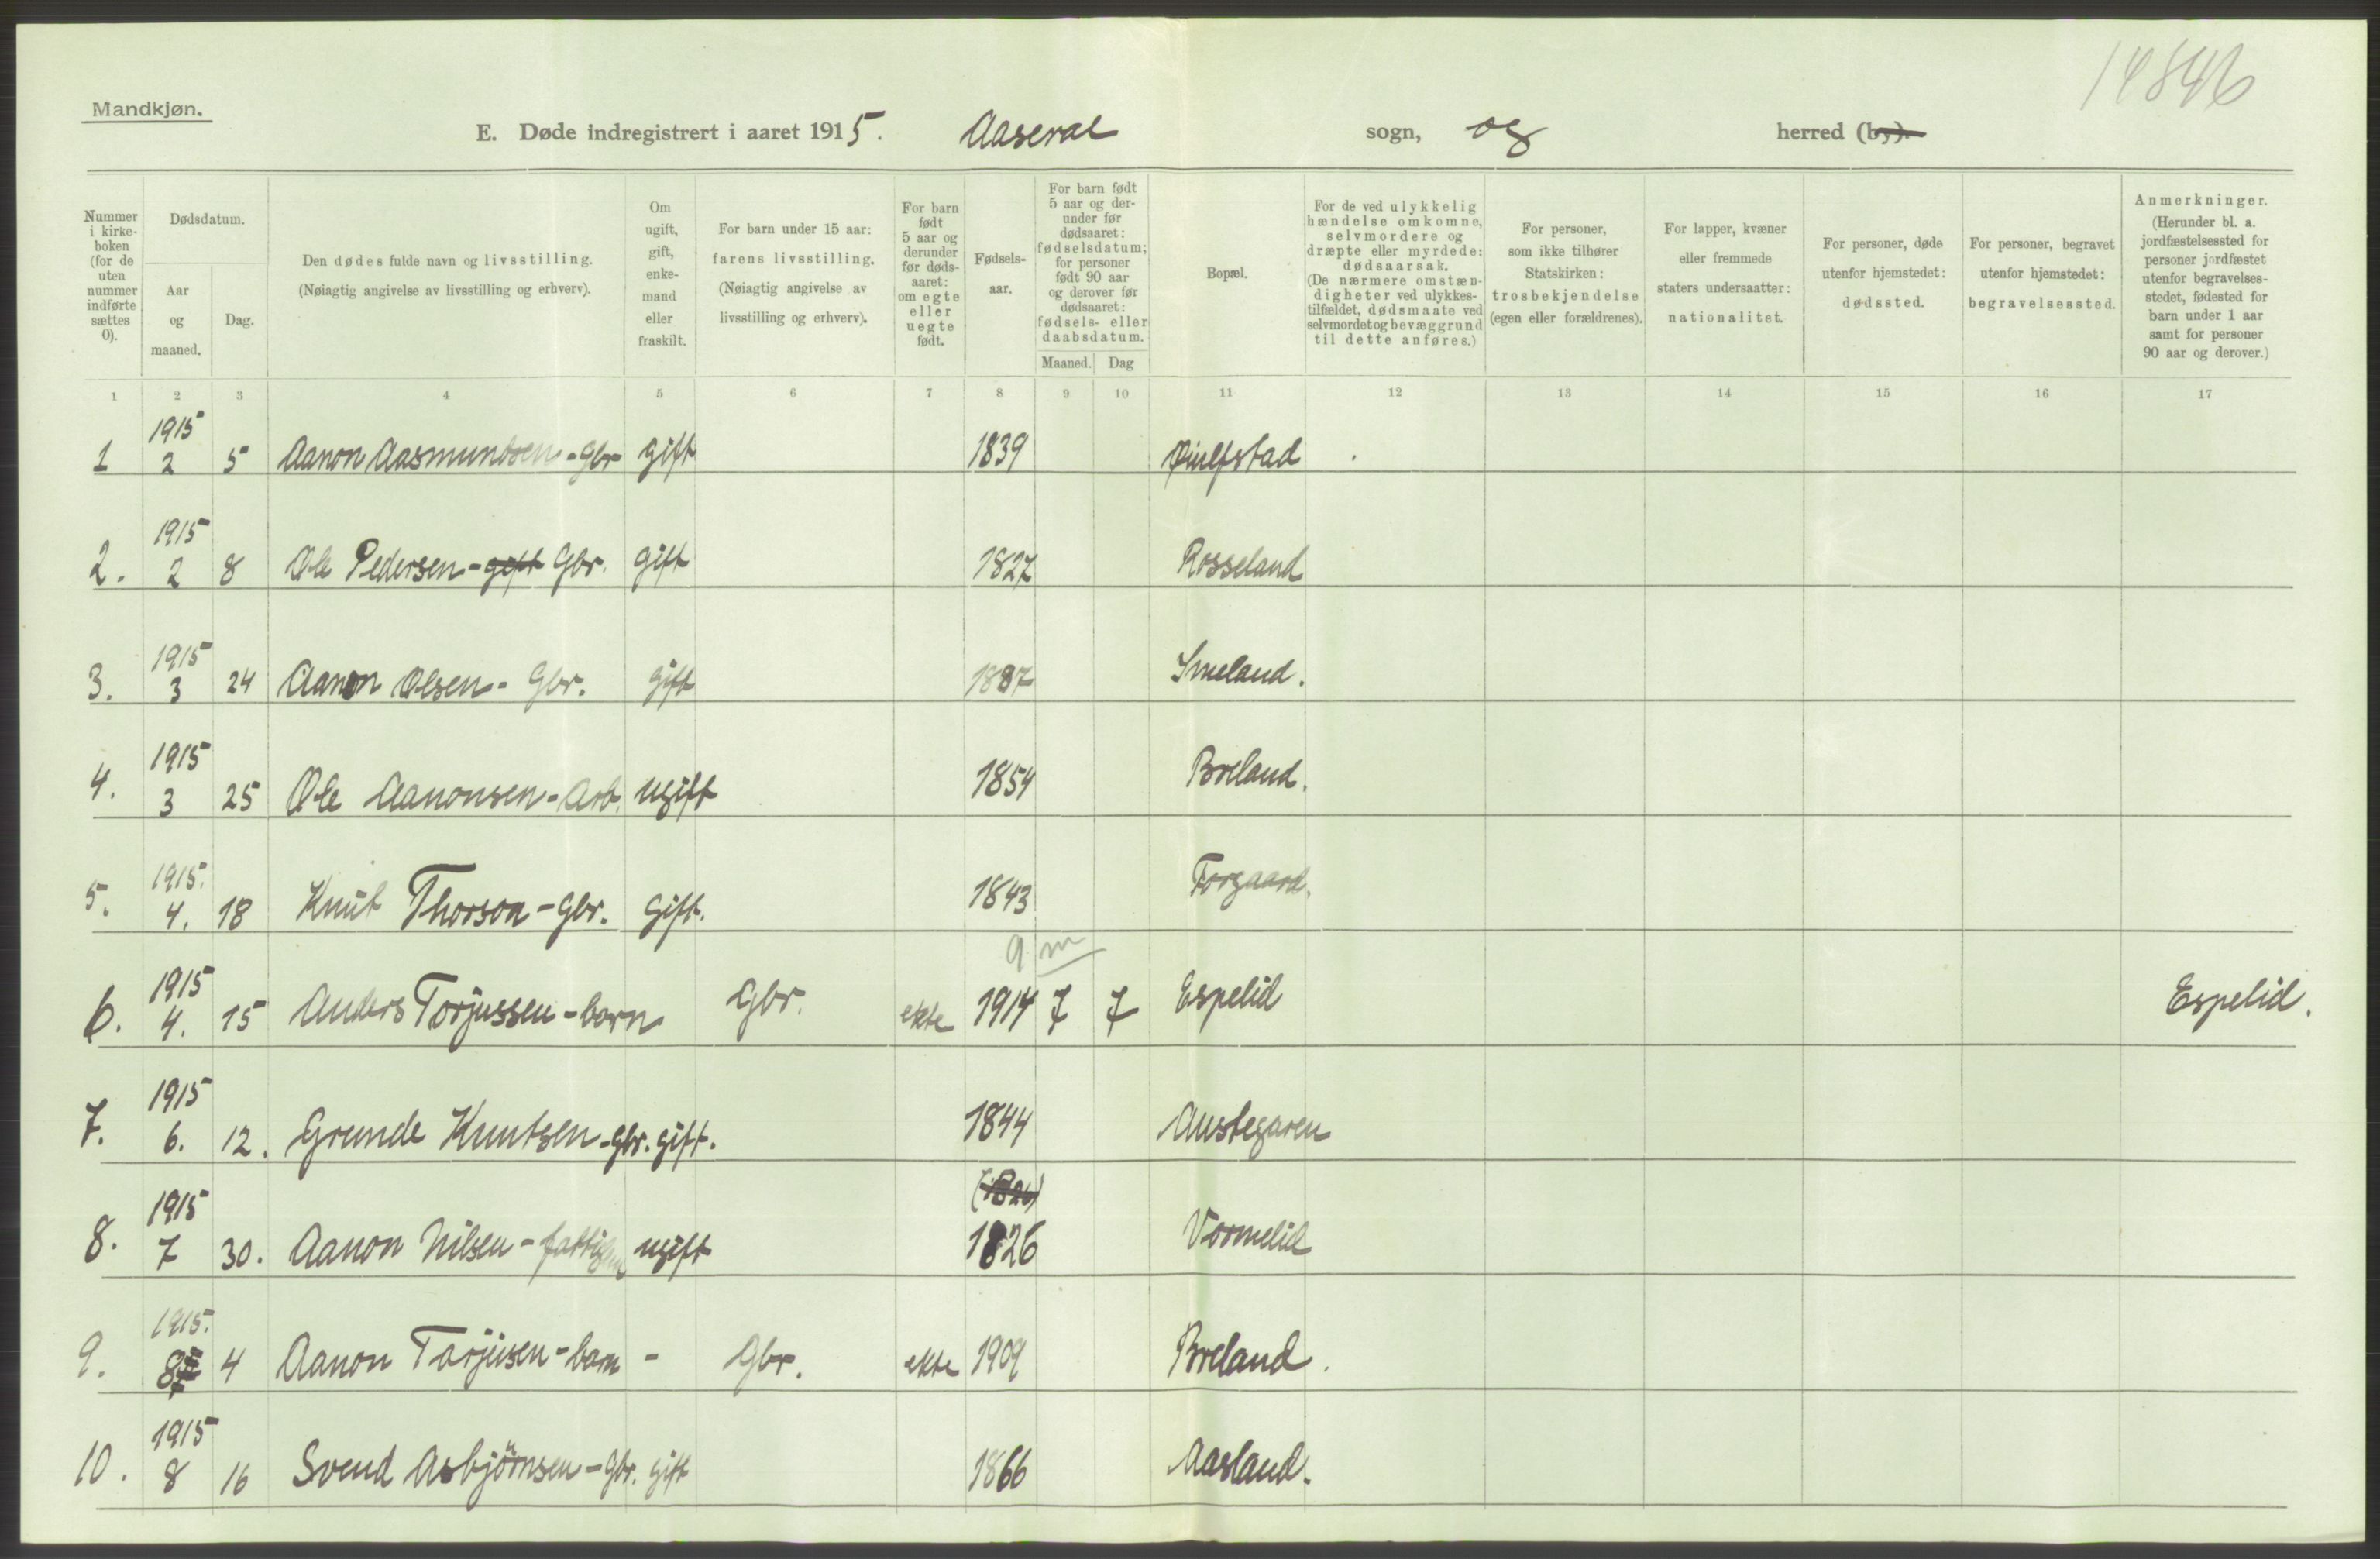 14846
Mandkjøn.
E. Døde indregistrert i aaret 1915. Aaseral sogn, og herred (by).
Nummer i kirke-boken (for de uten nummer indførte sættes 0).
Dødsdatum.
Aar og maaned.
Dag.
Den dødes fulde navn og livsstilling.
(Nøiagtig angivelse av livsstilling og erhverv).
Om ugift, gift, enke-mand eller fraskilt.
For barn under 15 aar: farens livsstilling.
(Nøiagtig angivelse av livsstilling og erhverv).
For barn født 5 aar og derunder før døds-aaret: om egte eller uegte født.
Fødsels-aar.
For barn født 5 aar og der-under før dødsaaret: fødselsdatum; for personer født 90 aar og derover før dødsaaret: fødsels- eller daabsdatum.
Maaned. Dag
Bopæl.
For de ved ulykkelig hændelse omkomne, selvmordere og dræpte eller myrdede: dødsaarsak.
(De nærmere omstæn-digheter ved ulykkes-tilfældet, dødsmaate ved selvmordet og bevæggrund til dette anføres.)
For personer, som ikke tilhører Statskirken: trosbekjendelse (egen eller forældrenes).
For lapper, kvæner eller fremmede staters undersaatter: nationalitet.
For personer, døde utenfor hjemstedet: dødssted.
For personer, begravet utenfor hjemstedet: begravelsessted.
Anmerkninger.
(Herunder bl. a. jordfæstelsessted for personer jordfæstet utenfor begravelses-stedet, fødested for barn under 1 aar samt for personer 90 aar og derover.)
1 2 3 4 5 6 7 8 9 10 11 12 13 14 15 16 17
1915
1 2 5 Aanon Aasmundsen - Gbr gift 1839 Øiulfstad
1915
2. 2 8 Ole Pedersen - gift Gbr. gift 1827 Rosseland
1915
3. 3 24 Aanon Olsen - Gbr. gift 1837 Smeland.
1915
4. 3 25 Ole Aanonsen - Arb. ugift 1854 Breland.
1915.
5. 4. 18 Knut Thorson - Gbr. gift. 1843 Forgaard.
9 m
1915
6. 4. 15 Anders Torjussen - barn Gbr. ekte 1914 7 7 Espelid Espelid.
1915
7. 6. 12. Grunde Knutsen - Gbr. gift. 1844 Austegaren
1915 (1826)
8. 7 30. Aanon Nilsen - ugift 1826 Vormelid
1915.
9. 8 4 Aanon Tarjusen - barn - Gbr. ekte 1909 Breland.
1915
10. 8 16 Svend Asbjörnsen - Gbr. gift 1866 Aasland.